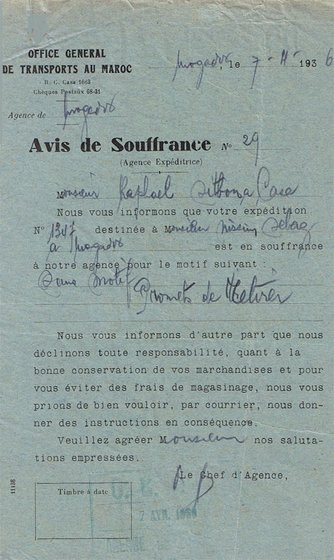 OFFICE GENERAL
DE TRANSPORTS AU MAROC
R. C. Casa 1663
Chèques Postaux 68-31
Mogador, le 7 - 4 - 1936
Agence de Mogador
Avis de Souffrance N° 29
(Agence Expéditrice)
Monsieur Raphael Casa
Nous vous informons que votre expédition
N° 1347 destinée à Monsieur Nissim Sebag
à Mogador est en souffrance
à notre agence pour le motif suivant :
Sans motif
Promets de Retirer
Nous vous informons d'autre part que nous
déclinons toute responsabilité, quant à la
bonne conservation de vos marchandises et pour
vous éviter des frais de magasinage, nous vous
prions de bien vouloir, par courrier, nous don-
ner des instructions en conséquence.
Veuillez agréer Monsieur nos saluta-
tions empressées.
Le Chef d'Agence,
Timbre à date
7 AVR. 1936